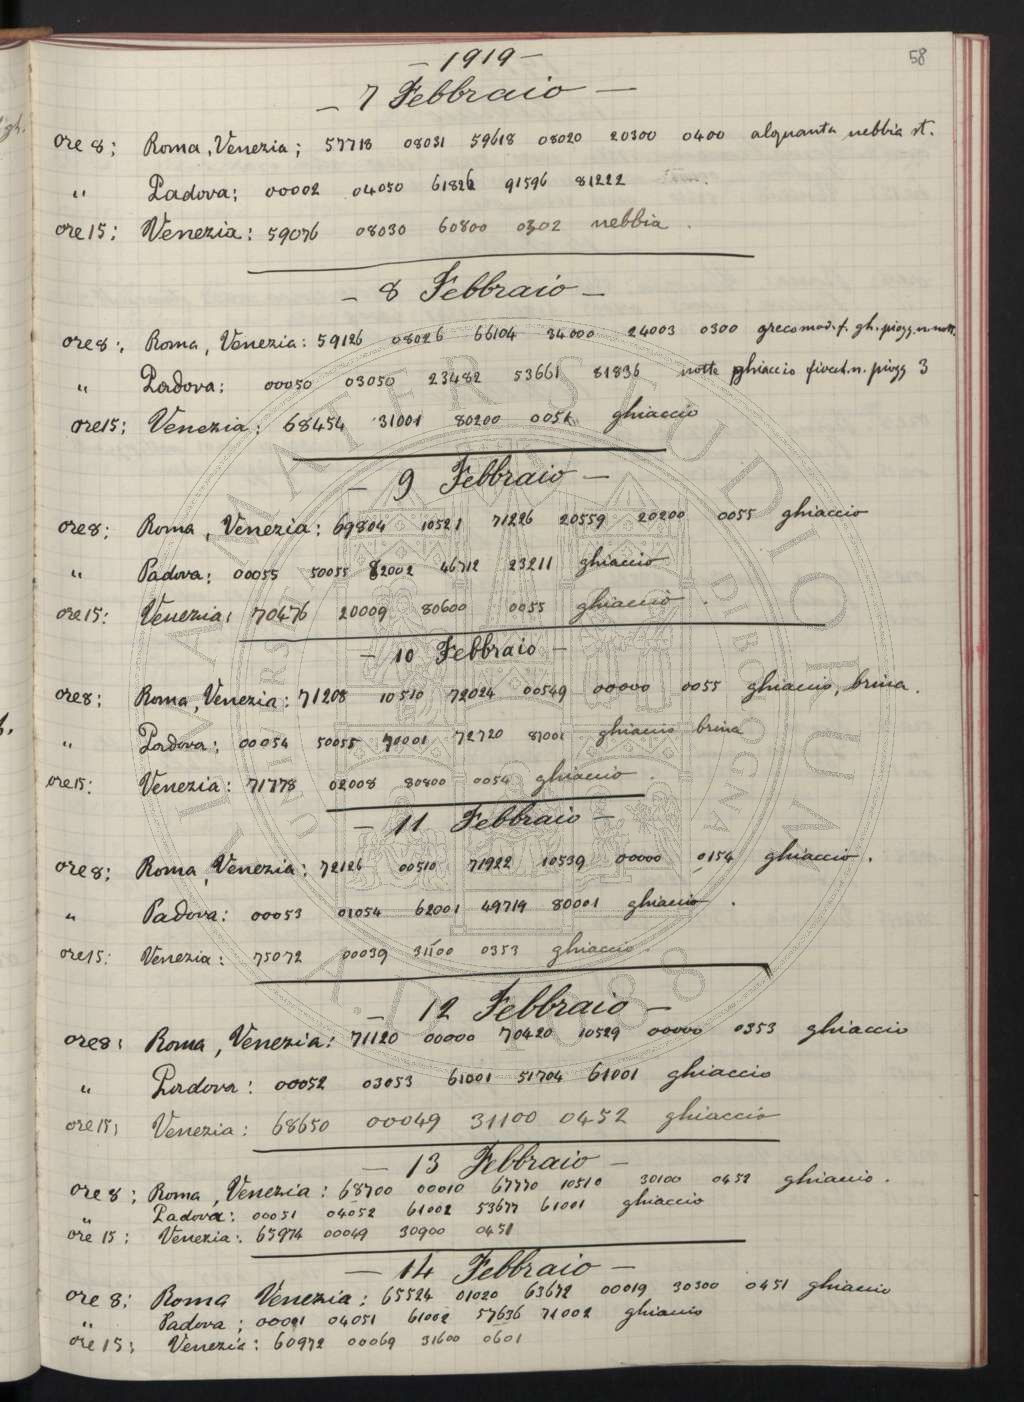 58
- 1919 -
- 7 Febbraio -
ore 8: Roma, Venezia; 57718 08031 59618 08020 20300 0400 alquanta nebbia st.
" Padova: 00002 04050 61826 91596 81222
ore 15: Venezia: 59076 08030 60800 0302 nebbia.
- 8 Febbraio -
ore 8: Roma, Venezia: 59126 08026 66104 34000 24003 0300 greco mod. f. gh. piogg. n. nott.
" Padova: 00050 03050 23482 53661 81836 notte ghiaccio n. piogg 3
ore 15: Venezia: 68454 31001 80200 0054 ghiaccio
- 9 Febbraio -
ore 8: Roma, Venezia: 69804 10521 71226 20559 20200 0055 ghiaccio
" Padova: 00055 50055 82002 46712 23211 ghiaccio
ore 15: Venezia: 70476 20009 80600 0055 ghiaccio.
- 10 Febbraio -
ore 8: Roma, Venezia: 71208 10510 72024 00549 00000 0055 ghiaccio, brina.
" Padova: 00054 50055 70001 72720 81001 ghiaccio brina
ore 15: Venezia: 71778 02008 80800 0054 ghiaccio.
- 11 Febbraio -
ore 8: Roma, Venezia: 72126 00510 71922 10539 00000 0154 ghiaccio.
" Padova: 00053 01054 62001 49719 80001 ghiaccio.
ore 15: Venezia: 75072 00039 31100 0353 ghiaccio.
- 12 Febbraio -
ore 8: Roma, Venezia: 71120 00000 70420 10529 00000 0353 ghiaccio
" Padova: 00052 03053 61001 51704 61001 ghiaccio
ore 15; Venezia: 68650 00049 31100 0452 ghiaccio
- 13 Febbraio -
ore 8; Roma, Venezia: 68700 00010 67770 10510 30100 0452 ghiaccio.
" Padova: 00051 04052 61002 53677 61001 ghiaccio
ore 15: Venezia: 65974 00049 30900 0451
- 14 Febbraio -
ore 8: Roma Venezia: 65524 01020 63672 00019 30300 0451 ghiaccio
" Padova; 00001 04051 61002 57636 71002 ghiaccio
ore 15; Venezia: 60972 00069 31600 0601